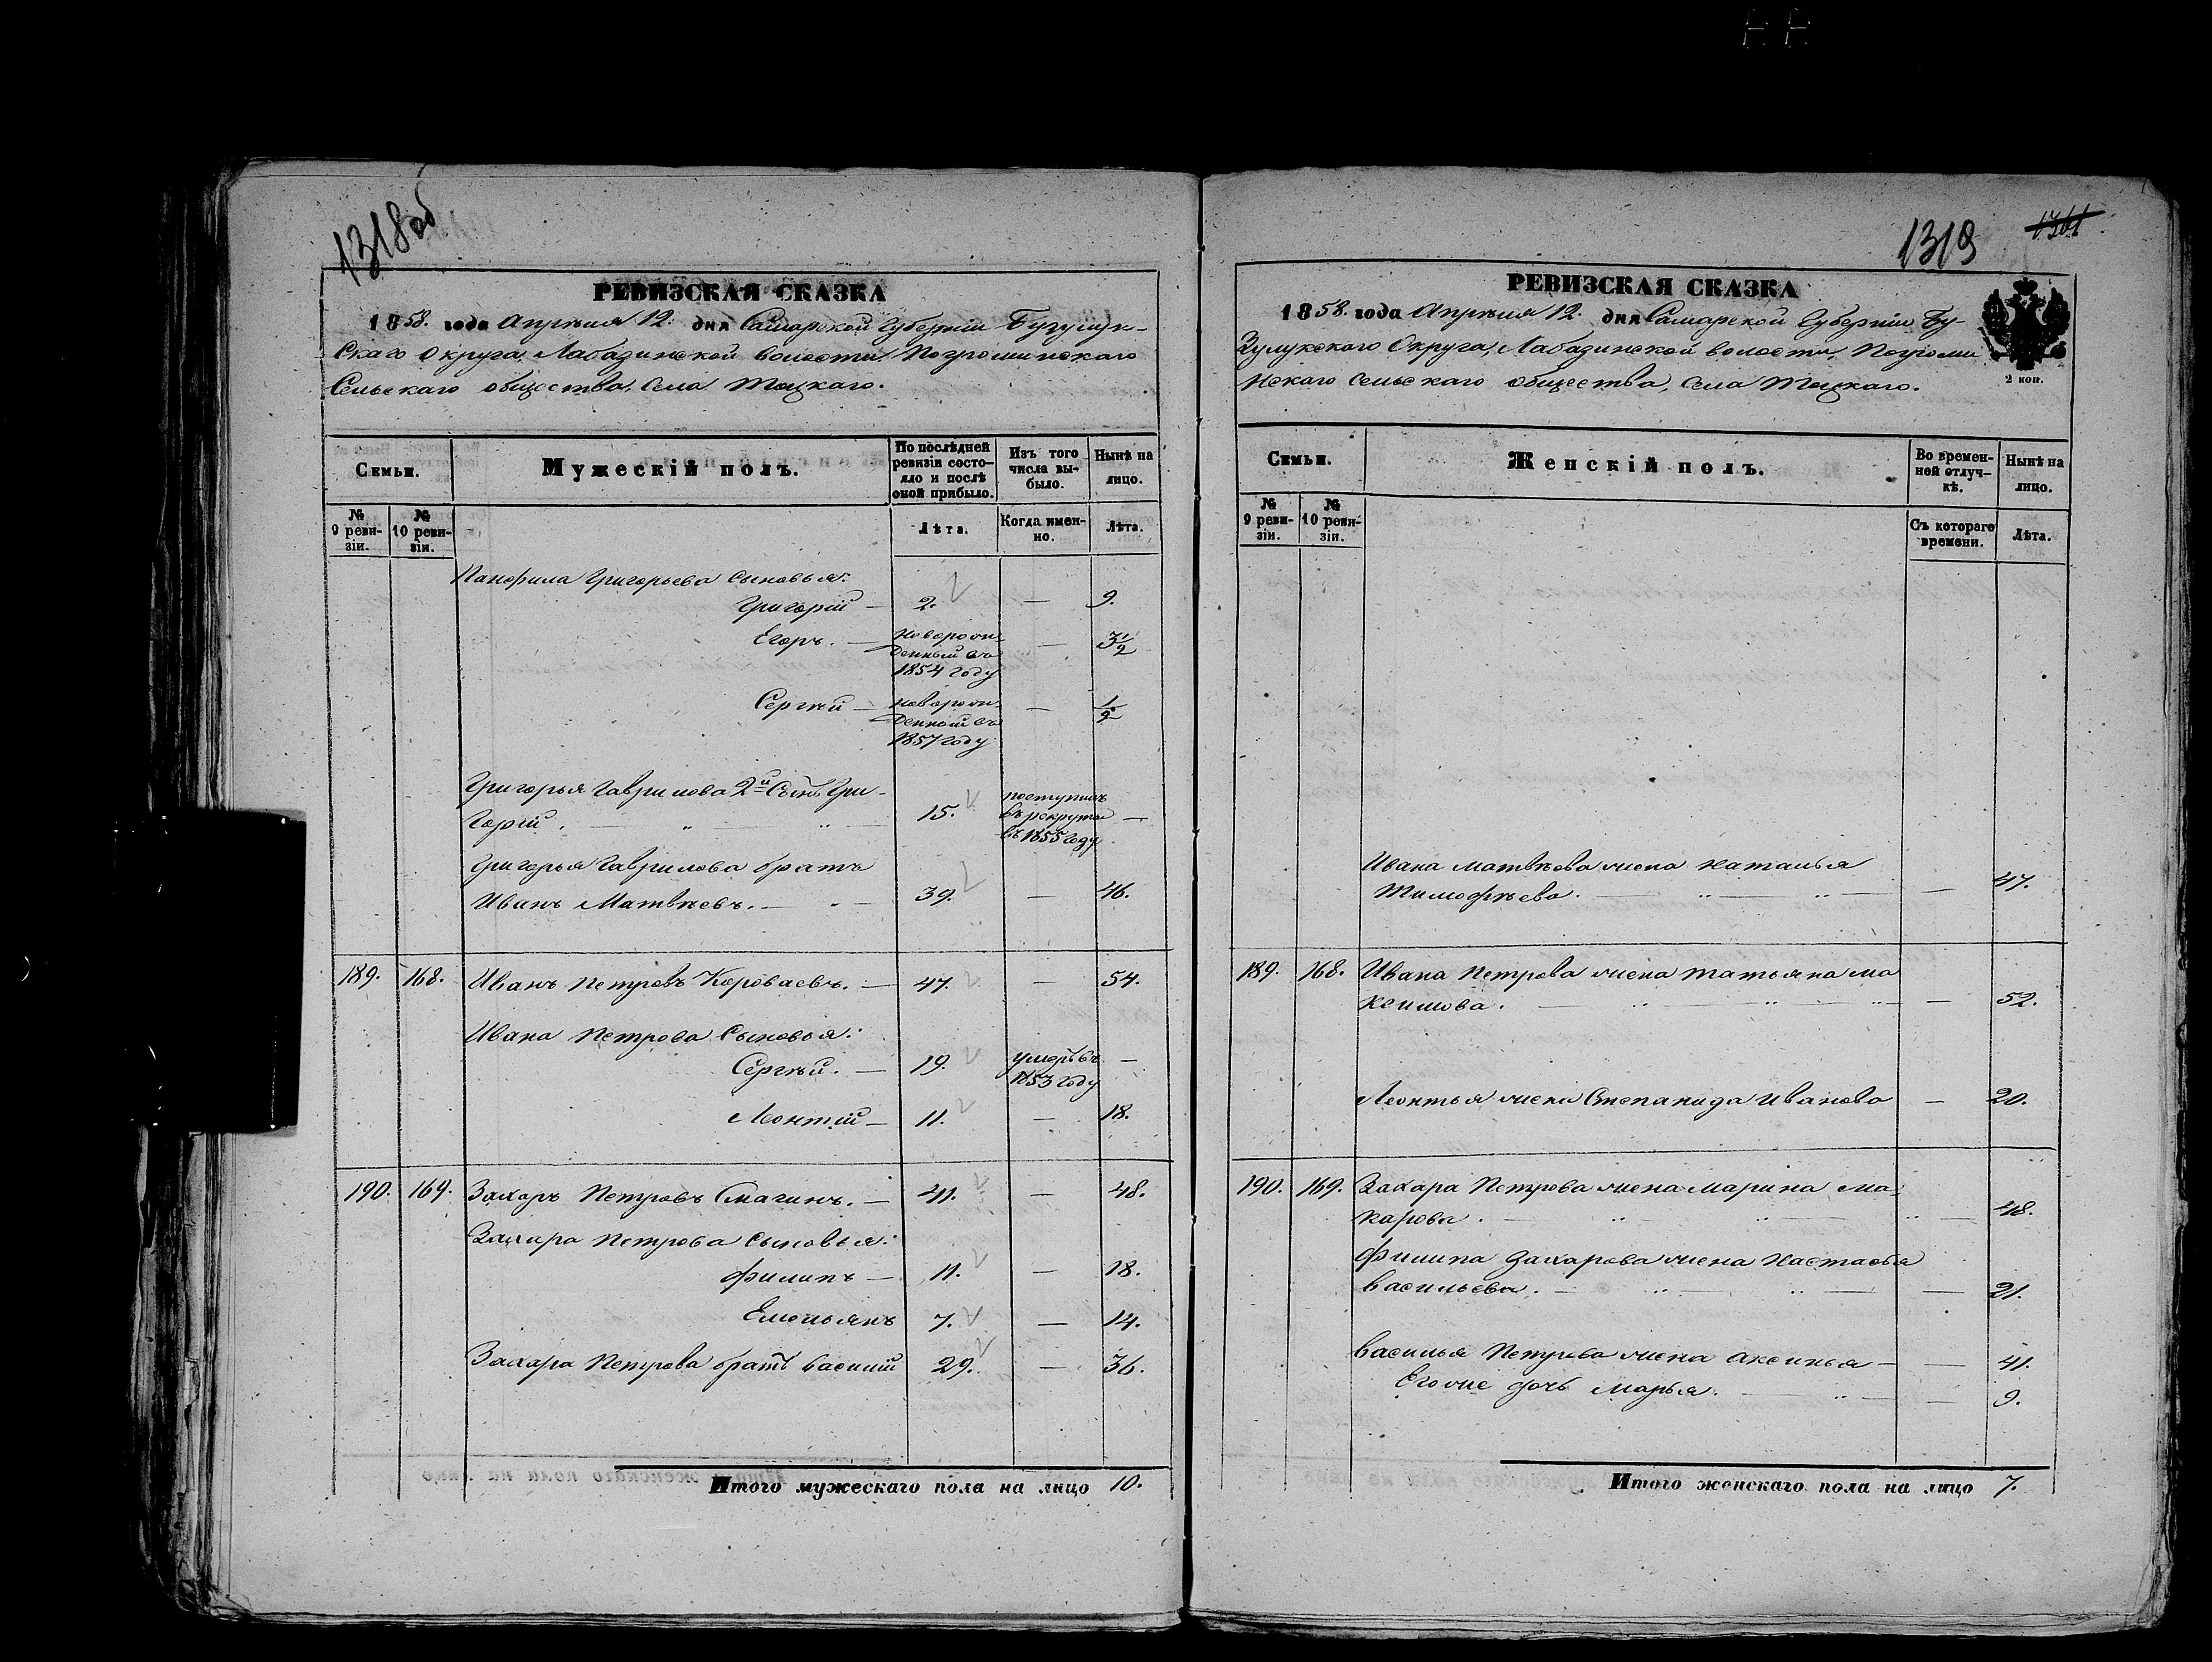 1318об
РЕВИЗСКАЯ СКАЗКА
1858. года Апрѣля 12. дня Самарской Губерніи Бузулук-
скаго Округа, Лабазинской волости, Погроминскаго
Сельскаго общества, села Тоцкаго.
Семьи.
Мужескій полъ.
По послѣдней ревизіи состо-
яло и послѣ оной прибыло.
Изъ того числа вы-
было.
Нынѣ на лицо.
№ 9 реви-
зіи.
№ 10 реви-
зіи.
Лѣта.
Когда имен-
но.
Лѣта.
Панфила Григорьева сыновья:
Григорій — 2. — 9.
Егоръ. — новорож-
денный въ — 3½
1854 году
Сергѣй — новорож-
денный въ — ½
1857 году
Григорья Гаврилова 2й Сынъ Гри-
горій. — 15. поступилъ
въ рекруты —
въ 1855 году
Григорья Гаврилова братъ
Иванъ Матвѣевъ. — 39. — 46.
189. 168. Иванъ Петровъ Короваевъ. — 47. — 54.
Ивана Петрова Сыновья:
Сергѣй. — 19. умеръ въ —
1853 году
Леонтій — 11. — 18.
190. 169. Захаръ Петровъ Смагинъ. — 41. — 48.
Захара Петрова сыновья:
Филипъ — 11. — 18.
Емельянъ 7. — 14.
Захара Петрова братъ Василій 29. — 36.
Итого мужескаго пола на лицо 10.
1319
1361
РЕВИЗСКАЯ СКАЗКА
1858. года Апрѣля 12 дня Самарской Губерніи Бу-
зулукского Округа, Лабазинской волости, Погроми
нскаго сельскаго общества, села Тоцкаго.
2 коп.
Семьи.
Женскій полъ.
Во времен-
ной отлуч-
кѣ.
Нынѣ на лицо.
№ 9 реви-
зіи.
№ 10 реви-
зіи.
Съ котораго времени.
Лѣта.
Ивана Матвѣева жена Наталья
Тимофѣева. — — 47.
189. 168. Ивана Петрова жена Татьяна Ма
ксимова. — — 52.
Леонтья жена Степанида Иванова — 20.
190. 169. Захара Петрова жена Марина Ма-
карова. — — 48.
Филипа Захарова жена Настасья
Васильева. — — 21.
Василья Петрова жена Аксинья — — 41.
Его же дочь Марья. — — 9.
Итого женскаго пола на лицо 7.